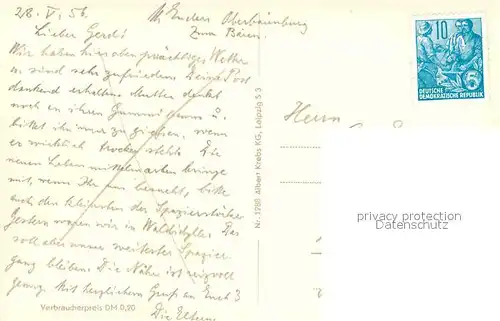 28. V. 56. M. Enders Oberbärenburg
Zum Bären.
Lieber Gerd!
Wir haben hier oben prächtiges Wetter
u. sind sehr zufrieden. Deine Post
dankend erhalten. Mutter denkt
noch an ihren Gummi u.
bittet ihn zu gießen, wenn
er wirklich trocken steht. Die
neuen Lebensmittelmarken bringe
mit, wenn Ihr uns besucht, bitte
auch den kleinsten der Spazierstöcke
Gestern waren wir in Waldidylle. Das
soll aber unser weitester Spazier-
gang bleiben. Die Nähe ist reizvoll
genug. Mit herzlichem Gruß an Euch 3
Die Eltern
Verbraucherpreis DM 0,20
Nr. 1798 Albert Krebs KG, Leipzig S 3
10
5
DEUTSCHE
DEMOKRATISCHE REPUBLIK
Herrn
privacy protection
Datenschutz